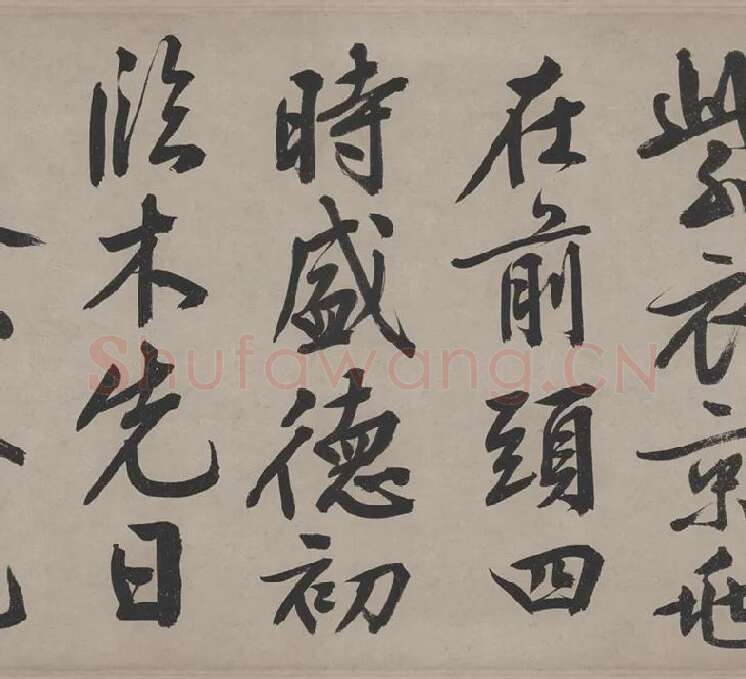 紫衣京
在前頭四
時盛德初
臨木先日
Shufawang.CN